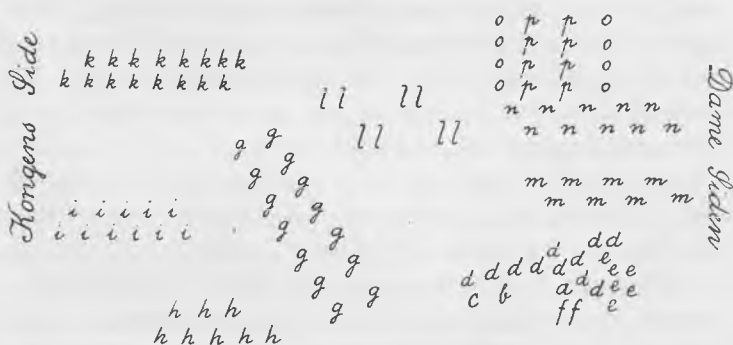 Kongens Side
k k k k k k k k
k k k k k k k k
l l l l
l l l l
o p p o
o p p o
o p p o
o p p o
n n n n n
n n n n n
m m m m
m m m m
g g
g
g g
g g
g g
g g
g g
g
i i i i i
i i i i i i
h h h
h h h h h
d d
d e
d d d d d d e e
c b a d d e e
f f e
Dame Siden